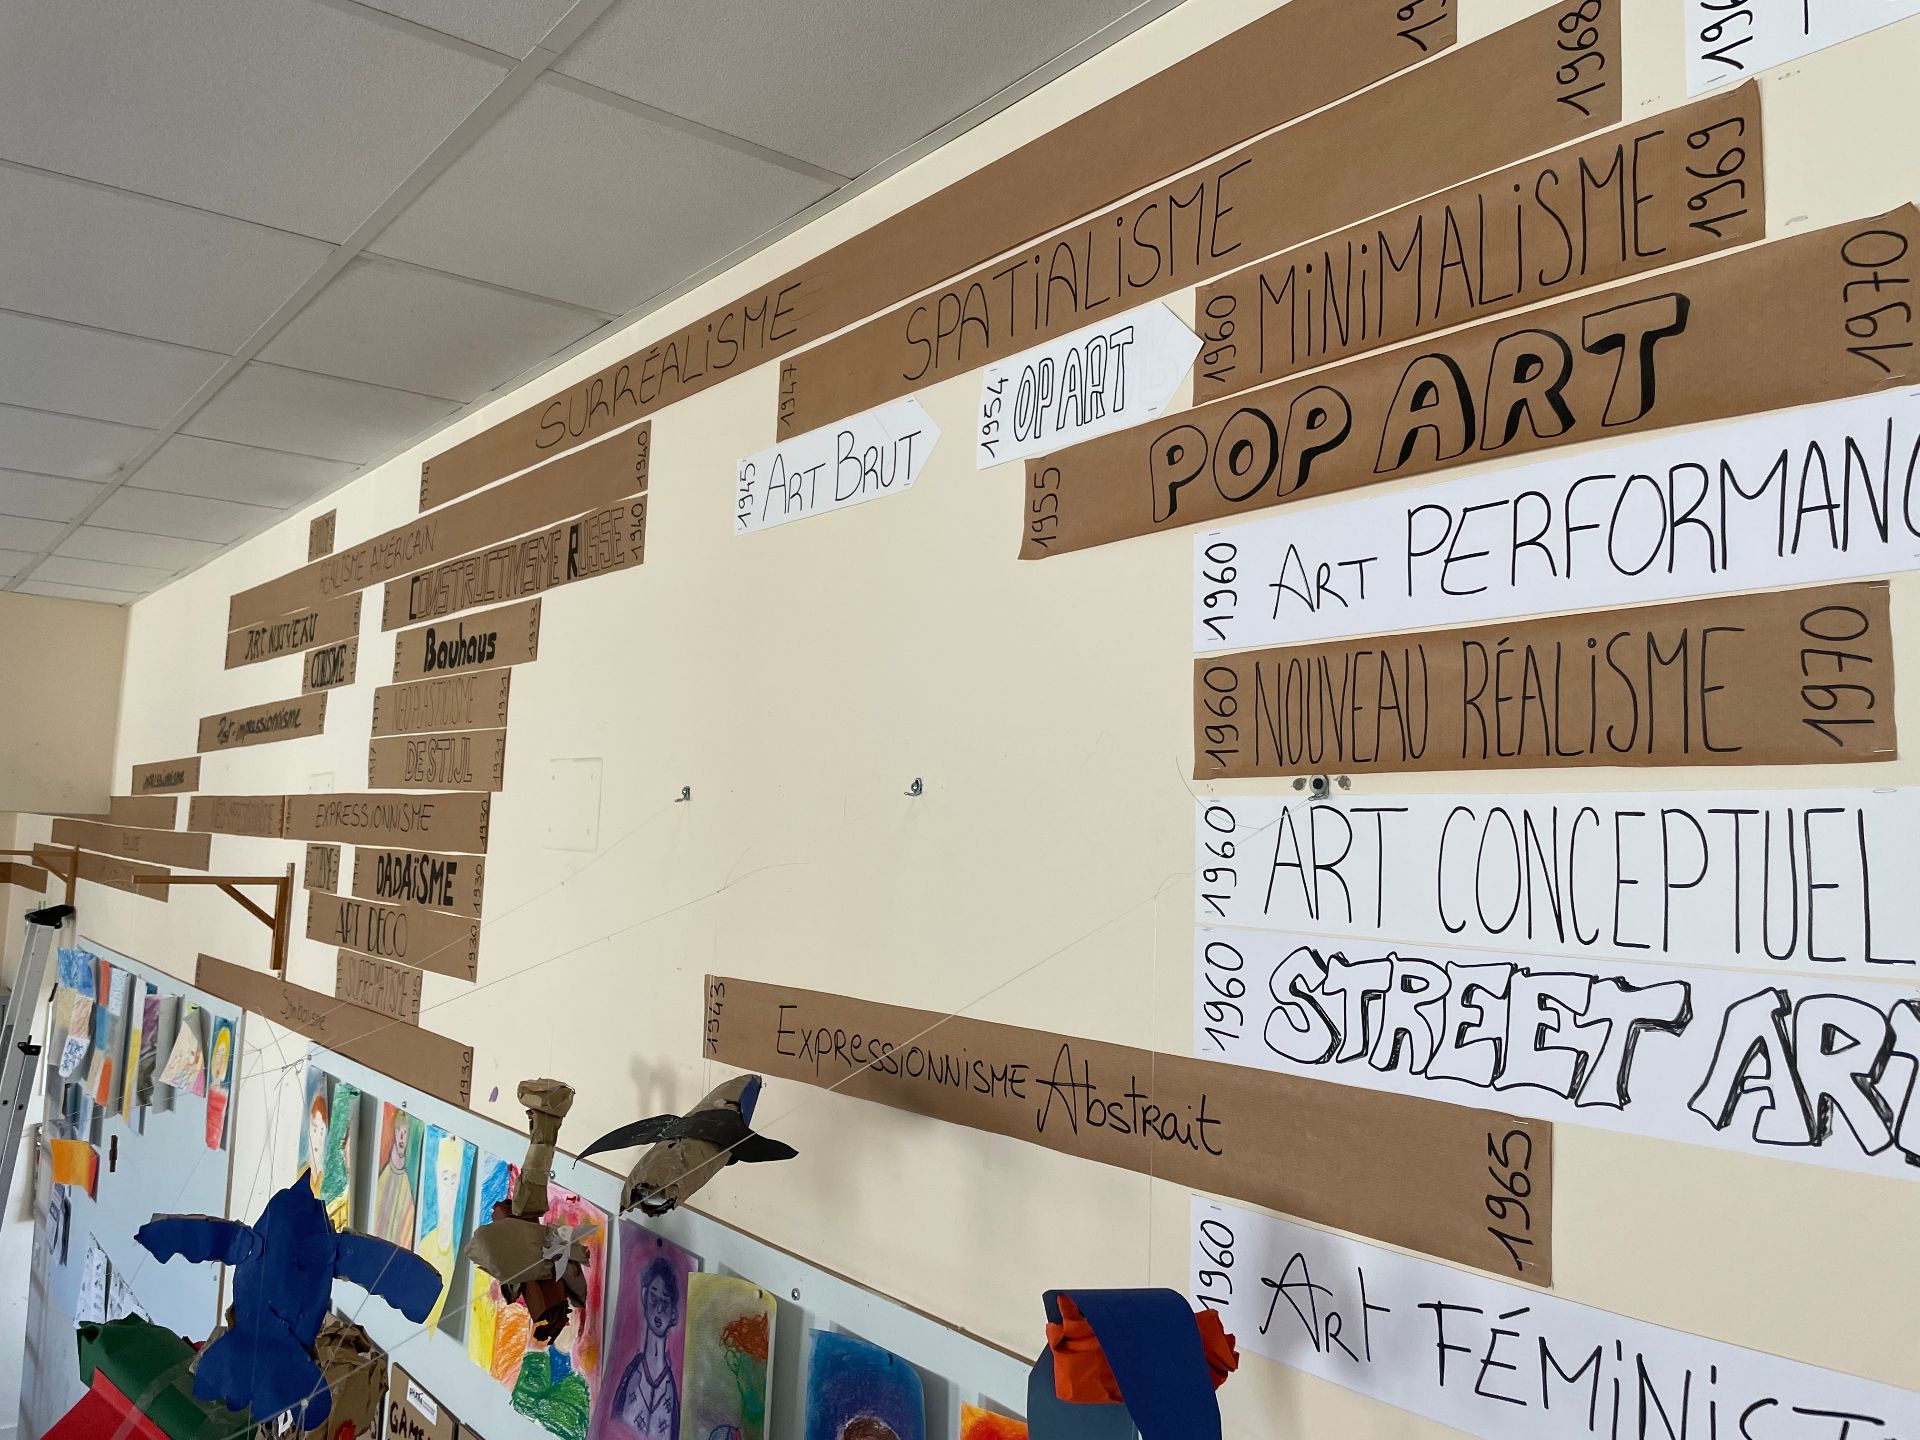 1968
1924 SURRÉALISME
1947 SPATIALISME
1960 MINIMALISME 1969
1954 OP ART
1945 ART BRUT
1955 POP ART 1970
1940
RÉALISME AMÉRICAIN
CONSTRUCTIVISME RUSSE 1940
ART NOUVEAU
1919 Bauhaus 1933
CUBISME
NÉOPLASTICISME 1931
Post-impressionnisme
1917 DE STIJL 1931
EXPRESSIONNISME 1930
DADAÏSME 1930
ART DECO 1930
SUPREMATISME 1925
Symbolisme 1930
1960 ART PERFORMANC
1960 NOUVEAU RÉALISME 1970
1960 ART CONCEPTUEL
1960 STREET ART
1943 EXPRESSIONNISME Abstrait 1965
1960 ART FÉMINIST
GAME